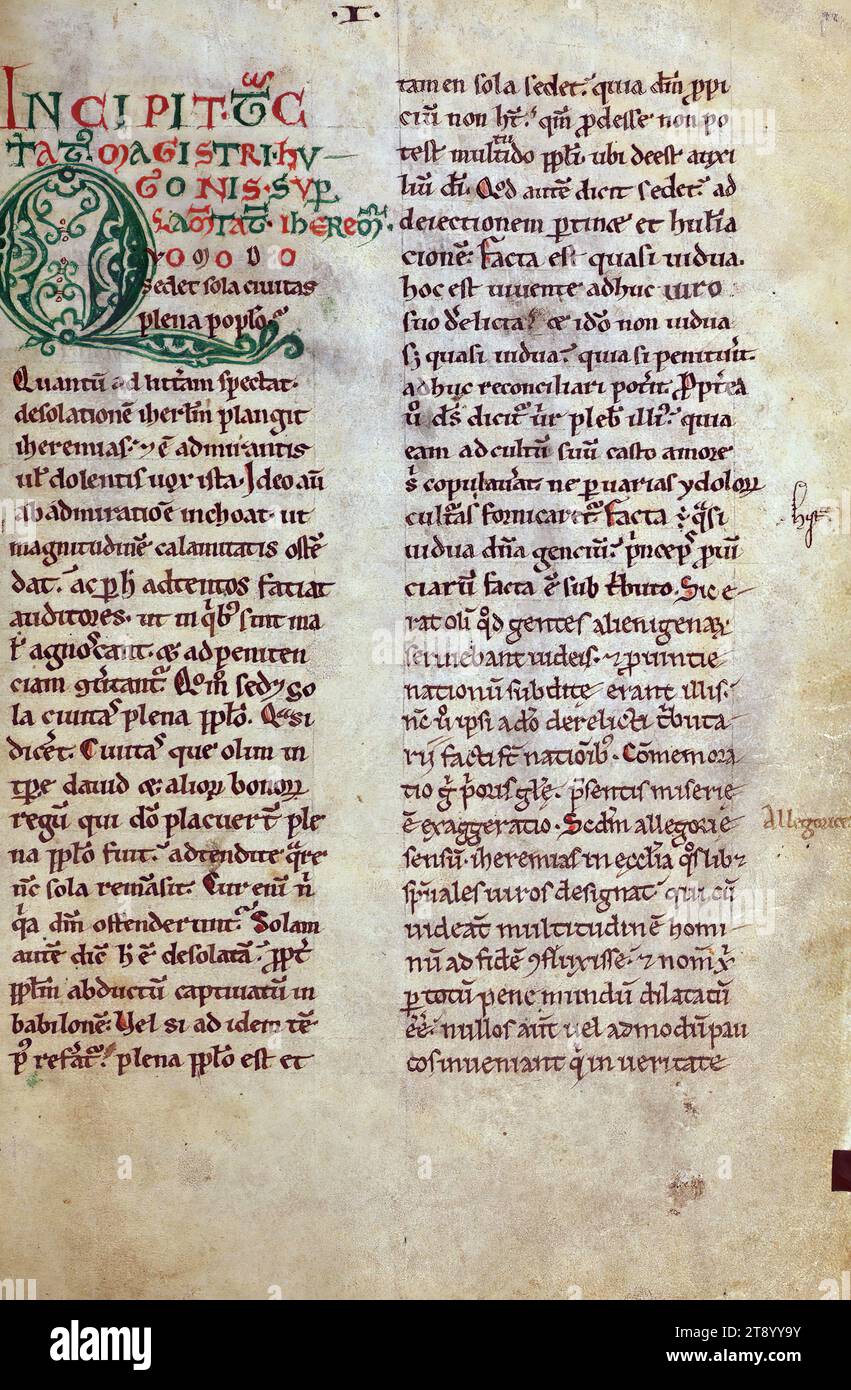 ·I·
INCIPIT·TᷤC
TAT̄·MAGISTRI·HV
GONIS·SVP̄
LAM̄TAT̄·IHEREM̄·
QVOMODO
sedet sola ciuitas
plena poplo.
Quantū ad litt̄am spectat.
desolationē iherlm̄ plangit
iheremias. ⁊ ē admirantis
ut̄ dolentis uox ista. Ideo aūt
ab admiratiōe inchoat. ut
magnitudinē calamitatis ostē
dat. ac p̄ h̄ adtentos faciat
auditores. ut in qͥbꝰ sunt ma
agnoscant. & ad peniten
ciam ꝯuertant᷑. Qūom̄ sed& so
la ciuitas plena pp̄lo. Quasi
dicer&. Ciuitas que olim in
tꝑe dauid & alioꝝ bonoꝝ
regū qui dō placuer̄t ple
na pp̄lo fuit. adtendite qͣre
nc̄ sola remāsit. Cur enī n̄
qͥa dm̄ offenderunt. Solam
autē dic̄ h̄ ē desolatā. ꝓpt̄
pp̄lm abductū captiuatū in
babilonē. Vel si ad idem tē
p᷒ refert᷑. plena pp̄lo est et
tamen sola sedet. quia dm̄ ꝓpi
ciū non ht̄. qm̄ ꝓdesse non po
test multitudo pp̄li. ubi deest auxi
liū dī. Qd̄ autē dicit sedet. ad
deiectionem ꝑtin& et humilia
cionē. Facta est quasi uidua.
hoc est uiuente adhuc uiro
suo derelicta. & idō non uidua
sꝫ quasi uidua. quia si penituerit.
adhuc reconciliari poterit. Propt̄ea
ū ds̄ dicit᷑ uir pleb᷒ illi᷒. quia
eam ad cultū suū casto amore
s᷒ copulauerat. ne ꝑ uarias ydoloꝝ
culturas fornicaret᷑. Facta ē qͣsi
uidua dn̄a genciū. p̄nceps ꝓuī
ciarū facta ē sub tͥbuto. Sic e
rat olī qd̄ gentes alienigenaꝝ
seruiebant iudeis. ⁊ ꝓuintie
nationū subdite erant illis.
nc̄ ū ipsi a dō derelicti tͥbuta
rij facti st̄ nationibꝰ. Cōmemora
tio gͦ p̄oris glē. p̄sentis miserie
ē exaggeratio. Scdm̄ allegorie
sensū. iheremias in ecclīa qͦslib&
sp̄uales uiros designat. qui cū
uideāt multitudinē homi
nū ad fidē ꝯfluxisse. ⁊ nom̄ xp̄i
ꝑ totū pene mundū dilatatū
eē. nullos aūt uel admodū pau
cos inueniant qͥ in ueritate
hyst̄
Allegorice
alamy
Image ID: 2T8YY9Y
www.alamy.com